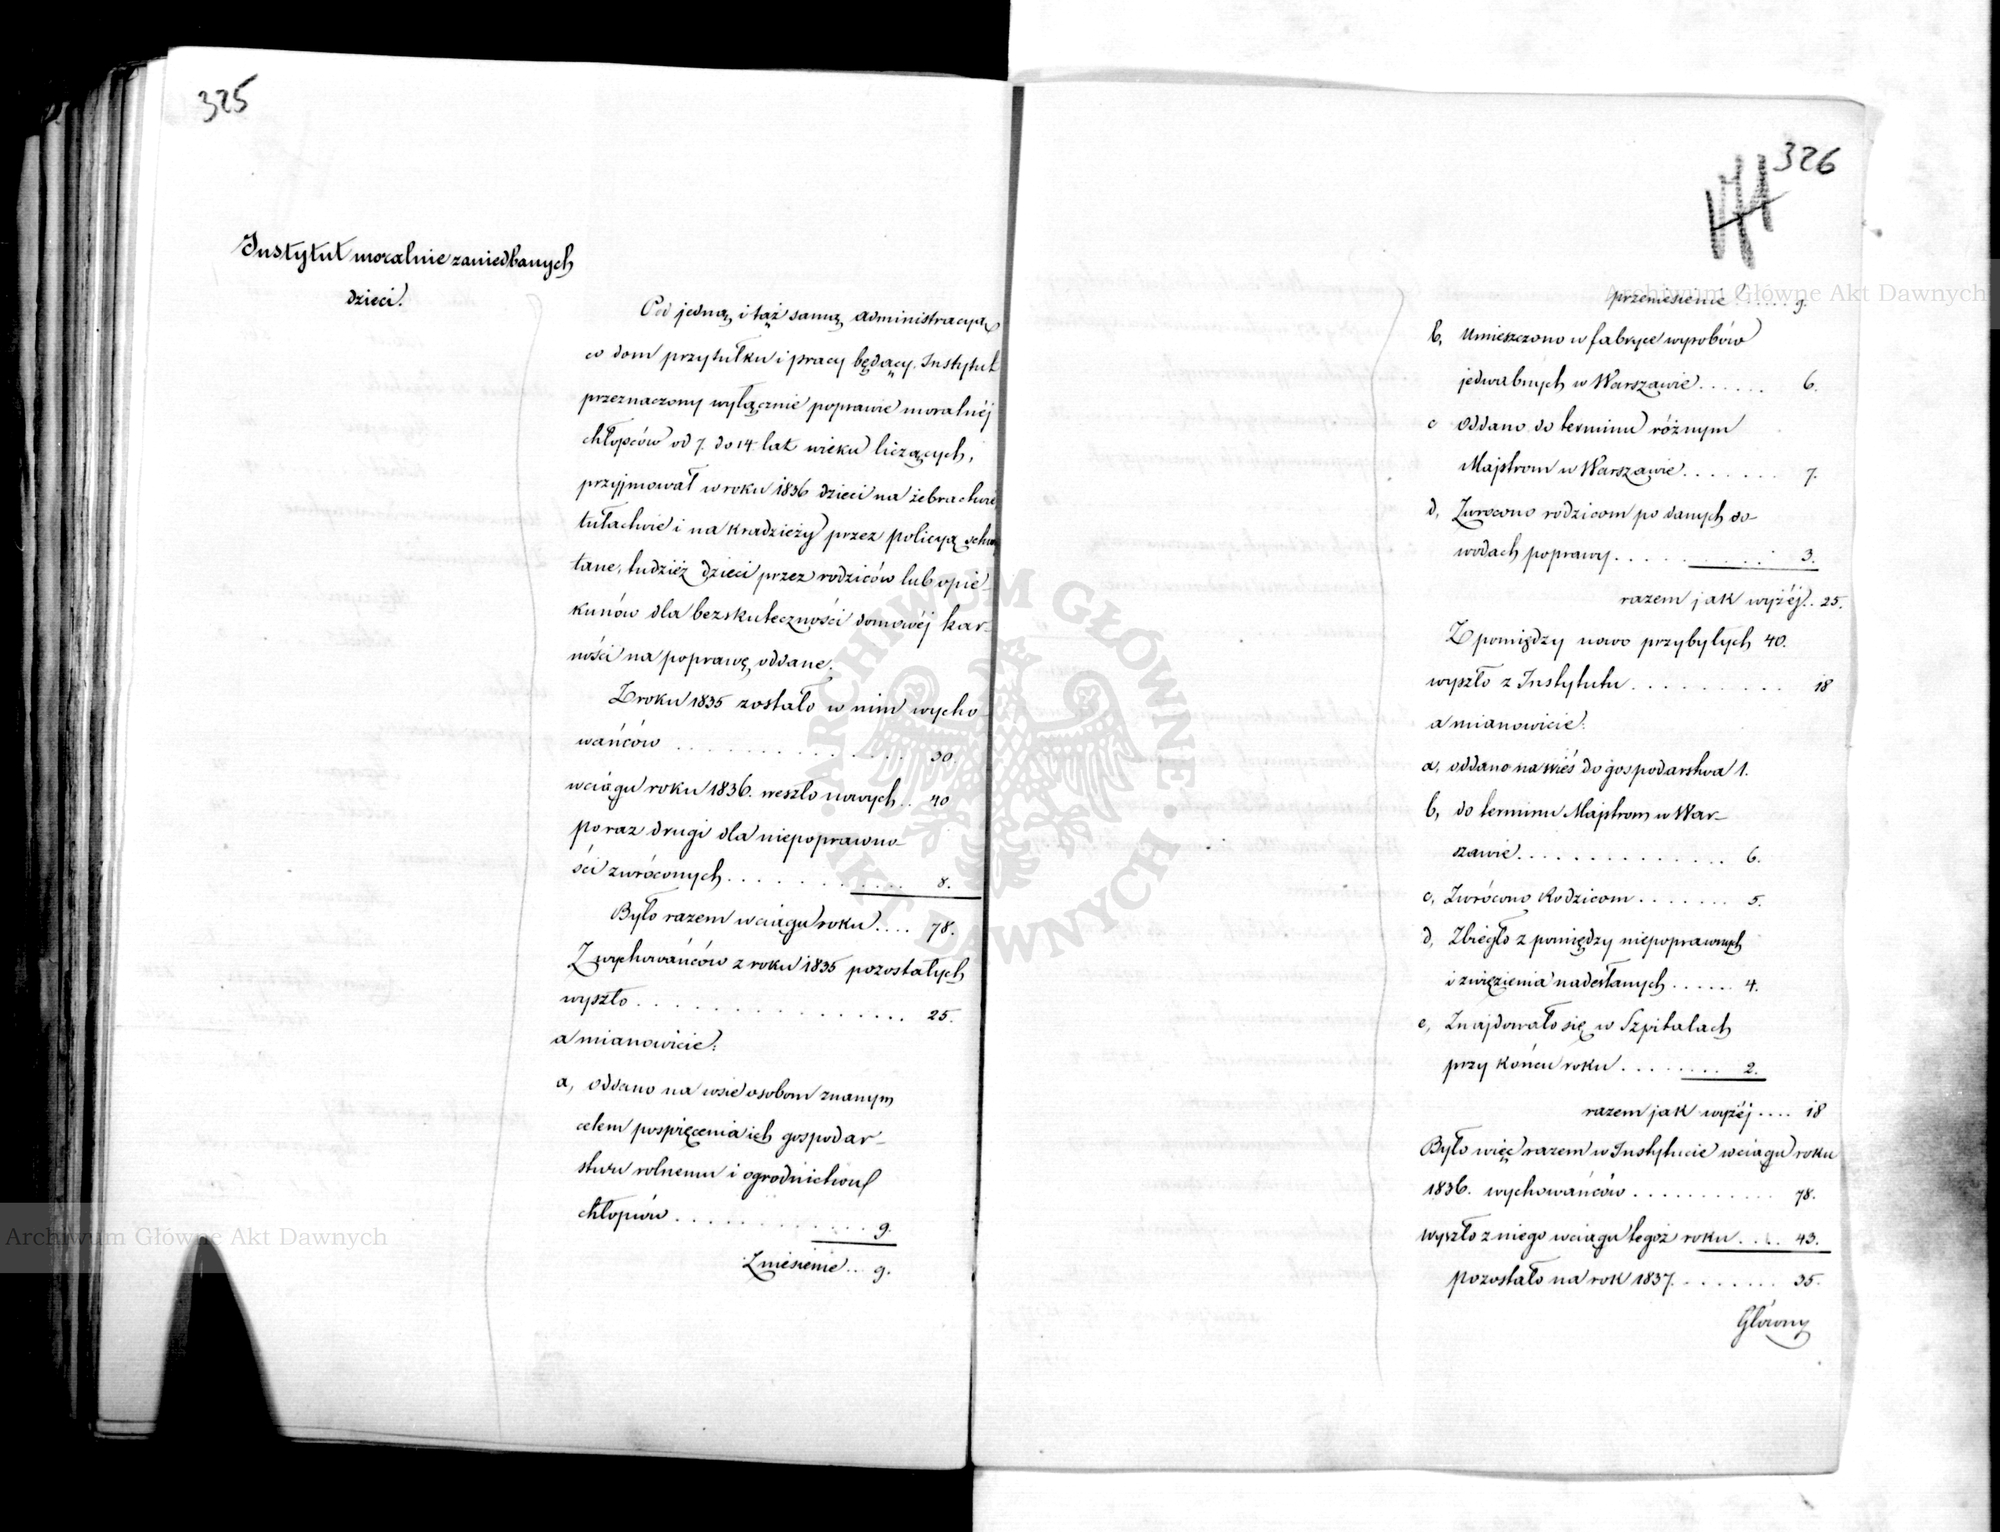 325
Instytut moralnie zaniedbanych
dzieci.
Pod jedną i tąż samą administracyą
co dom przytułku i pracy będący Instytut
przeznaczony wyłącznie poprawie moralnéj
chłopców od 7. do 14 lat wieku liczących,
przyjmował w roku 1836 dzieci na żebractwie
tułactwie i na kradzieży przez policyą schwy
tane, tudzież dzieci przez rodziców lub opie-
kunów dla bezskuteczności domowéj kar-
ności na poprawę oddane.
Z roku 1835 zostało w nim wycho-
wańców . . . . . . . . . . . . 30.
w ciągu roku 1836. weszło nowych . . 40
po raz drugi dla niepoprawno-
ści zwróconych . . . . . . . . . . 8.
Było razem w ciągu roku . . . . 78.
Z wychowańców z roku 1835 pozostałych
wyszło . . . . . . . . . . . . . . . 25.
a mianowicie:
a, oddano na wsie osobom znanym
celem poświęcenia ich gospodar-
stwu rolnemu i ogrodnictwu
chłopców . . . . . . . . . . . . . 9.
Zniesienie . . 9.
326
przeniesienie . . . . . 9.
b, Umieszczono w fabryce wyrobów
jedwabnych w Warszawie . . . . . . 6.
c oddano do terminu różnym
Majstrom w Warszawie . . . . . . . 7.
d, Zwrócono rodzicom po danych do-
wodach poprawy . . . . . . . . . . 3.
razem jak wyżéj . . 25.
Z pomiędzy nowo przybyłych 40.
wyszło z Instytutu . . . . . . . . . . 18
a mianowicie:
a, oddano na wieś do gospodarstwa 1.
b, do terminu Majstrom w War-
szawie . . . . . . . . . . . . . 6.
c, Zwrócono Rodzicom . . . . . . . 5.
d, Zbiegło z pomiędzy niepoprawnych
i z więzienia nadesłanych . . . . . . 4.
e, Znajdowało się w Szpitalach
przy końcu roku . . . . . . . . 2.
razem jak wyżéj . . . . 18
Było więc razem w Instytucie w ciągu roku
1836. wychowańców . . . . . . . . . . . 78.
wyszło z niego w ciągu tegoż roku . . . . 43.
pozostało na rok 1837. . . . . . . . 35.
Główny
Archiwum Główne Akt Dawnych
Archiwum Główne Akt Dawnych
ARCHIWUM GŁÓWNE AKT DAWNYCH